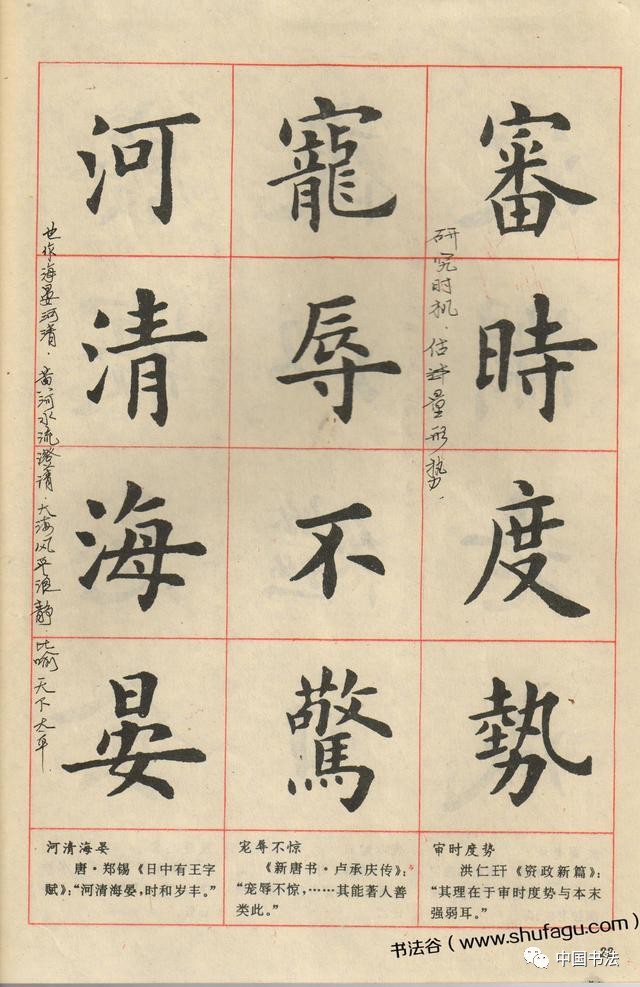 審時度勢
寵辱不驚
河清海晏
研究时机．估计量形势．
也作海晏河清．黄河水流澄清．大海风平浪静．比喻天下太平
河清海晏
唐·郑锡《日中有王字
赋》：“河清海晏，时和岁丰。”
宠辱不惊
《新唐书·卢承庆传》：
“宠辱不惊，……其能著人善
类此。”
审时度势
洪仁玕《资政新篇》：
“其理在于审时度势与本末
强弱耳。”
书法谷（www.shufagu.com）
中国书法